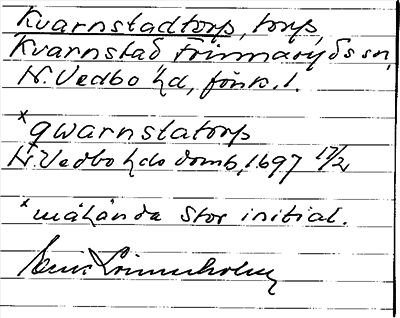 Kvarnstadtorp, torp,
Kvarnstad Frinnaryds sn,
N. Vedbo hd, Jönk. l.
×qwarnstatorp
N. Vedbo hds domb, 1697 17/2
×måhända stor initial.